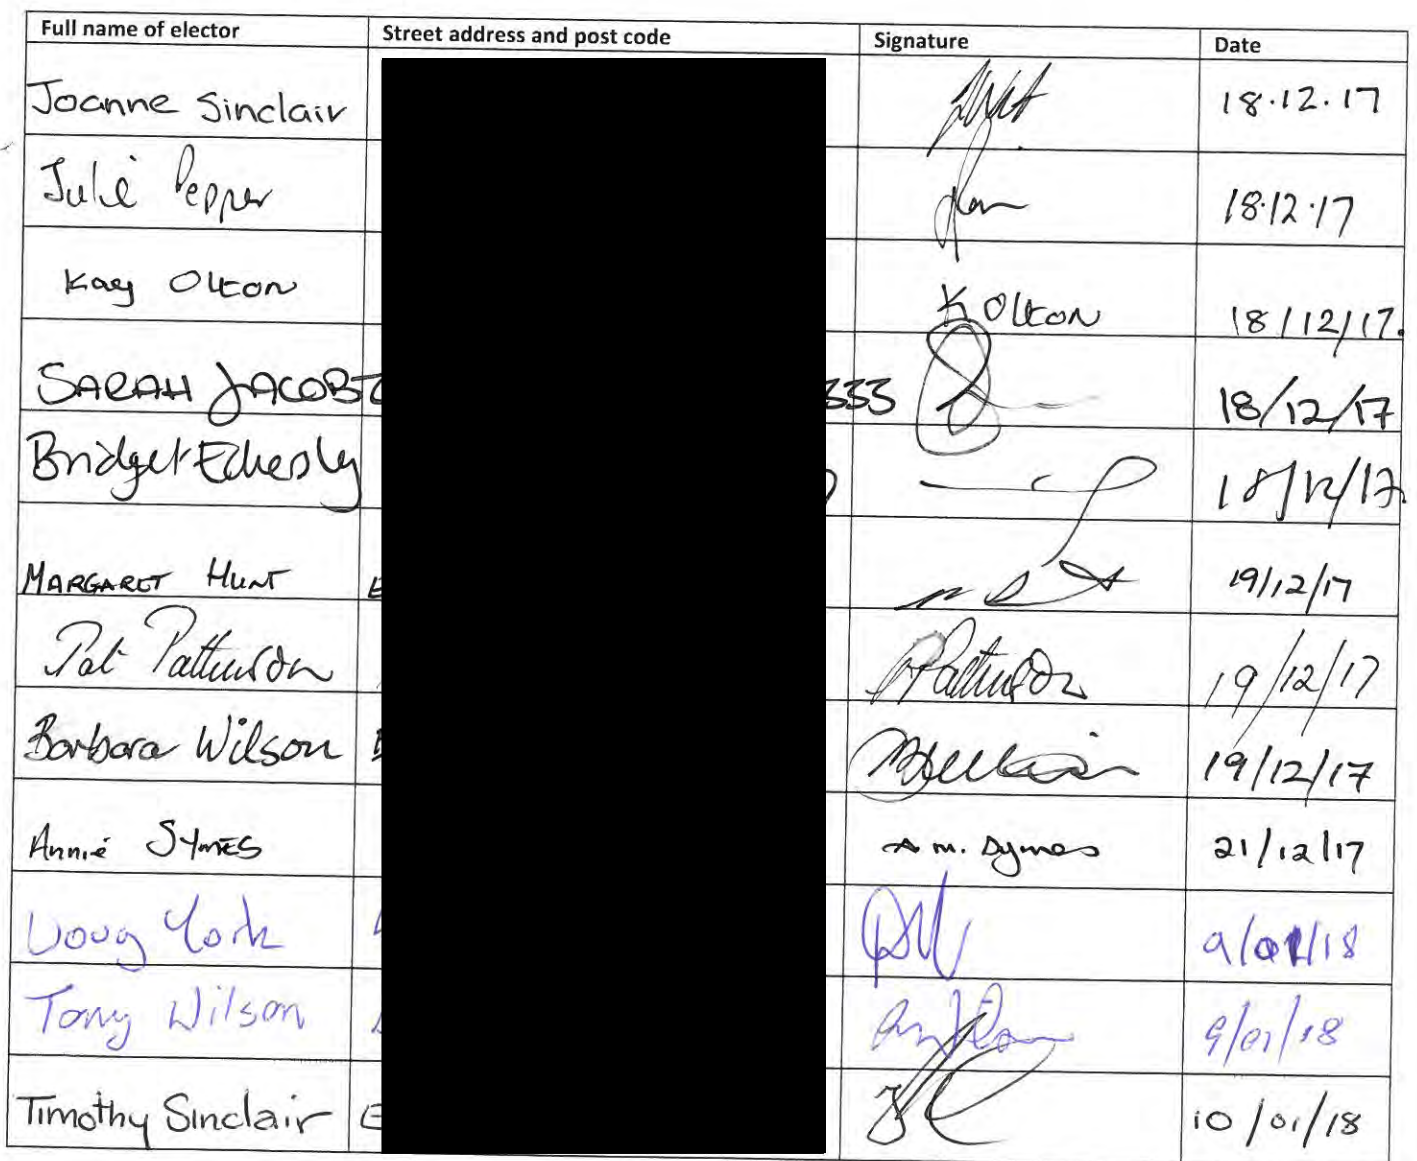 Full name of elector Street address and post code Signature Date
Joanne Sinclair 18.12.17
Julie Pepper 18.12.17
Kay Olton K Olton 18/12/17.
SARAH JACOB 333 18/12/17
Bridget 18/12/17
MARGARET HUNT 19/12/17
Pat Patterson Patterson 19/12/17
Barbara Wilson 19/12/17
Annie SYMES A m. Symes 21/12/17
Doug York 9/01/18
Tony Wilson 9/01/18
Timothy Sinclair 10/01/18